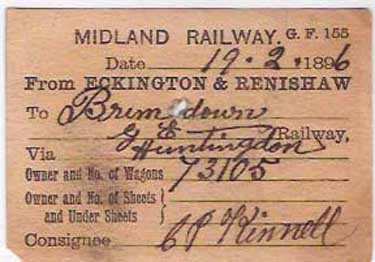 MIDLAND RAILWAY. G. F. 155
Date 19.2.1896
From ECKINGTON & RENISHAW
To Brimsdown
G E Railway,
Via Huntingdon
Owner and No. of Wagons 73105
Owner and No. of Sheets
and Under Sheets
Consignee C P Kinnell